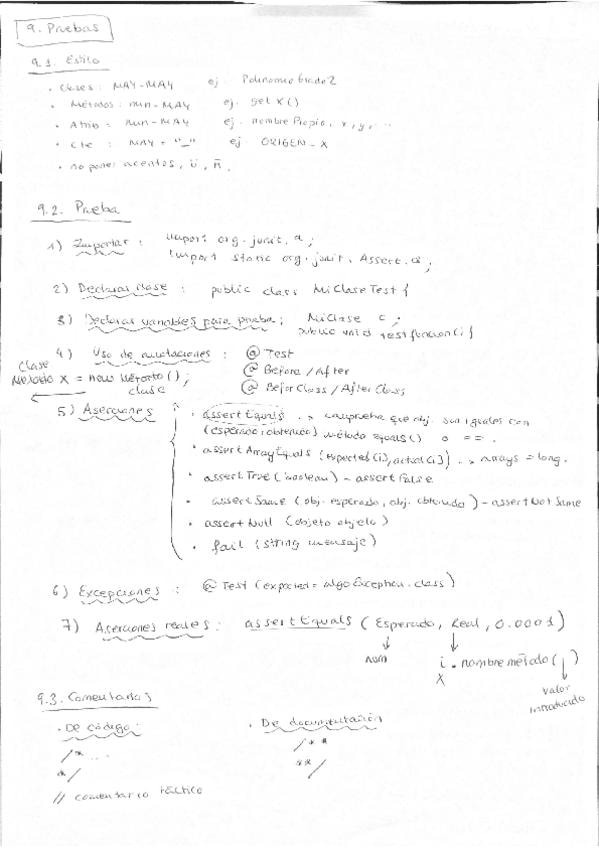 9. Pruebas
9.1. Estilo
· Clases : MAY-MAY ej. PolinomioGrado2
· Métodos : min-MAY ej. getX()
· Atrib : min-MAY ej. nombrePropio, x, y, ...
· Cte : MAY + "_" ej ORIGEN_X
· no poner acentos, ü, ñ.
9.2. Prueba
1) Importar : import org.junit.*;
import static org.junit.Assert.*;
2) Declarar clase : public class MiClaseTest {
3) Declarar variables para prueba : MiClase c;
public void testfuncion() {
4) Uso de anotaciones : @Test
@Before / After
@BeforClass / AfterClass
Clase
Método X = new Método();
clase
5) Aserciones
· assertEquals -> comprueba que obj. son iguales con
(esperado, obtenido) método equals() o ==.
· assertArrayEquals (expected[i], actual[i]) -> arrays = long.
· assertTrue (boolean) - assertFalse
· assertSame (obj. esperado, obj. obtenido) - assertNotSame
· assertNull (objeto objeto)
· fail (string mensaje)
6) Excepciones : @Test (expected = algoException.class)
7) Aserciones reales : assertEquals (Esperado, Real, 0.0001)
num i . nombre método ( )
X
valor
introducido
9.3. Comentarios
· De código :
/* ...
*/
// comentario táctico
· De documentación
/**
**/